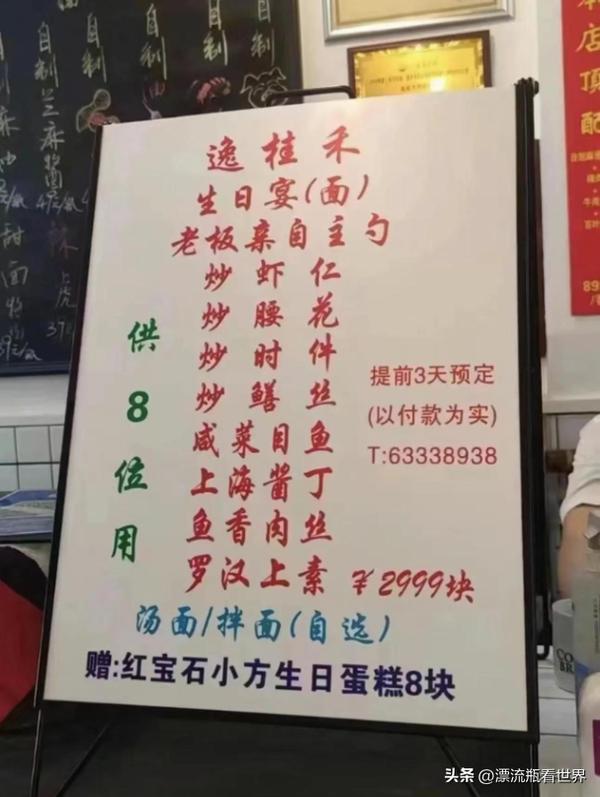 逸桂禾
生日宴(面)
老板亲自主勺
炒虾仁
炒腰花
炒时件
炒鳝丝
咸菜目鱼
上海酱丁
鱼香肉丝
罗汉上素 ¥2999块
供8位用
提前3天预定
(以付款为实)
T:63338938
汤面/拌面(自选)
赠:红宝石小方生日蛋糕8块
自制
自制
自制
自制
芝麻酱
辣
虎
甜
面
本店顶配
头条 @漂流瓶看世界